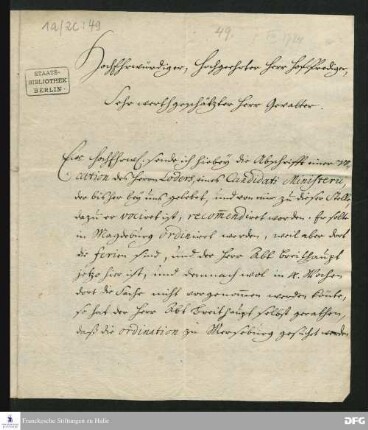 1a/2c:49
49.
STAATS-
BIBLIOTHEK
BERLIN
HochEhrwürdiger, Hochgeehrter Herr Hofprediger,
Sehr werthgeschätzter Herr Gevatter.
Ew. HochEhrw. sende ich hierbey die Abschrifft einer Vo-
cation des Herrn Loders, eines Candidati Ministerii,
der bisher bey uns gelebet, und von mir zu dieser Stelle
dazu er vociret ist, recommendiret worden. Er solte
in Magdeburg ordiniret werden, weil aber dort
die ferien sind, und der Herr Abt Breithaupt
jetzo hier ist, und demnach wol in 4. Wochen
dort die Sache nicht vorgenommen werden könte,
so hat der Herr Abt Breithaupt selbst gerathen,
daß die ordination zu Merseburg gesucht werden
Franckesche Stiftungen zu Halle
DFG